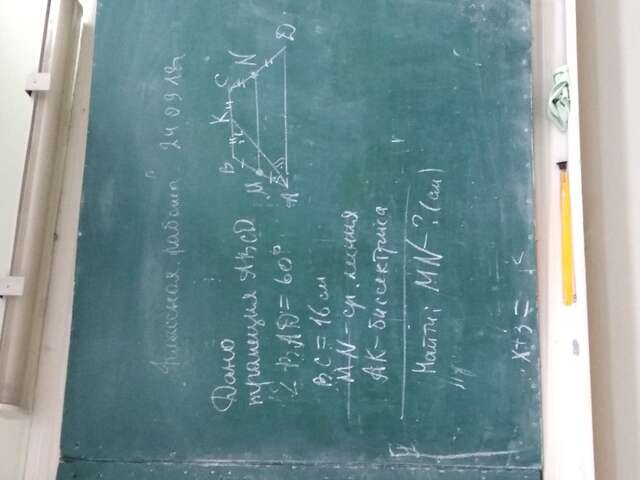 Классная работа 24.09.18г
Дано
трапеция ABCD
∠BAD = 60°
BC = 16 см
MN - ср. линия
AK - биссектриса
Найти; MN - ? (см)
x+3 =
B K C
M N
A D